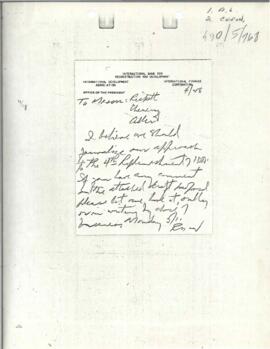 490/5/768
INTERNATIONAL BANK FOR
RECONSTRUCTION AND DEVELOPMENT
INTERNATIONAL DEVELOPMENT
ASSOCIATION
INTERNATIONAL FINANCE
CORPORATION
OFFICE OF THE PRESIDENT
4/28
To Messrs: Rickett
Chenery
Adler
I believe we should
formalize our approach
to the 4th Replenishment of IDA.
If you have any comment
on the attached draft
please let me have it, orally
or in writing by close of
business Monday 5/1